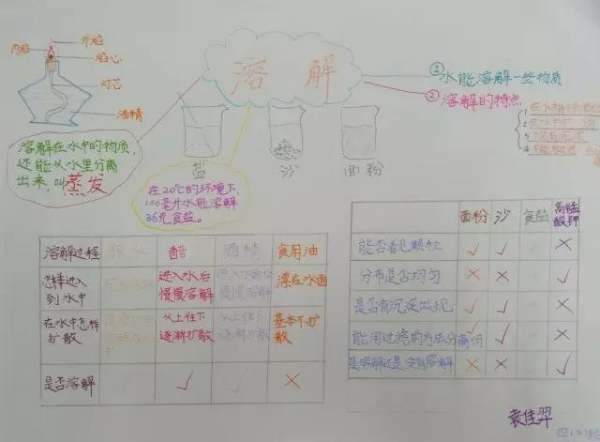 外焰
内焰
焰心
灯芯
酒精
溶解
①水能溶解一些物质
②溶解的特点
溶解在水中的物质,
还能从水里分离
出来,叫蒸发
盐
沙
面粉
在20℃的环境下,
100毫升水能溶解
36克食盐。
溶解过程 醋 酒精 食用油
怎样进入到水中 进入水后慢慢溶解 漂在水面
在水中怎样扩散 从上往下逐渐扩散 从上往下逐渐扩散 基本不扩散
是否溶解 √ √ ×
面粉 沙 食盐 高锰酸钾
能否看见颗粒 √ √ ×
分布是否均匀 × × √
是否有沉淀出现 √ √ ×
能用过滤的方法分离吗 √ √ ×
× × √
袁佳羿